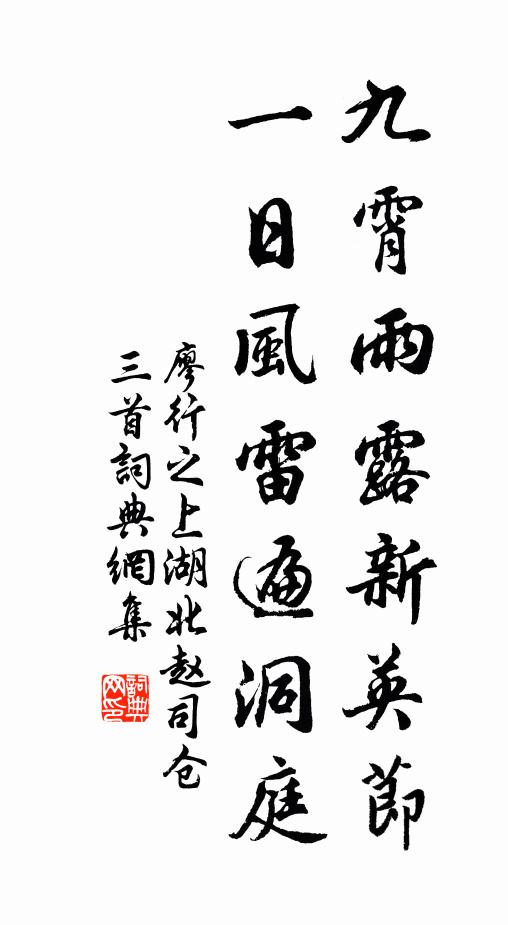 九霄雨露新英節
一日風雷遍洞庭
廖行之上湖北赵司仓
三首詞典網集
詞典网印